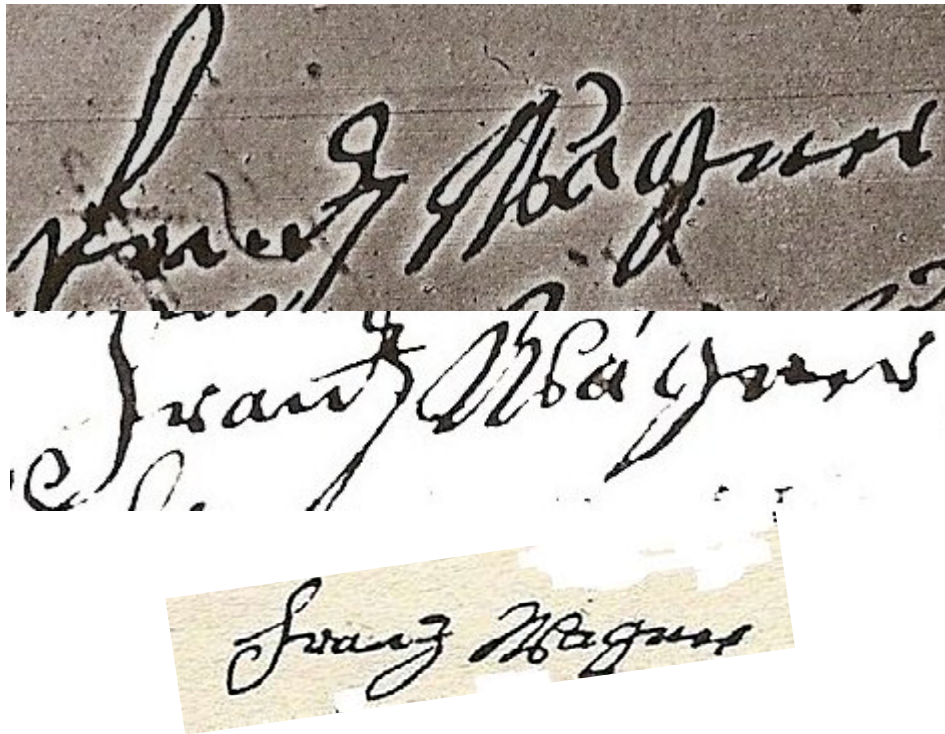 Frantz Wagner
Frantz Wagner
Franz Wagner